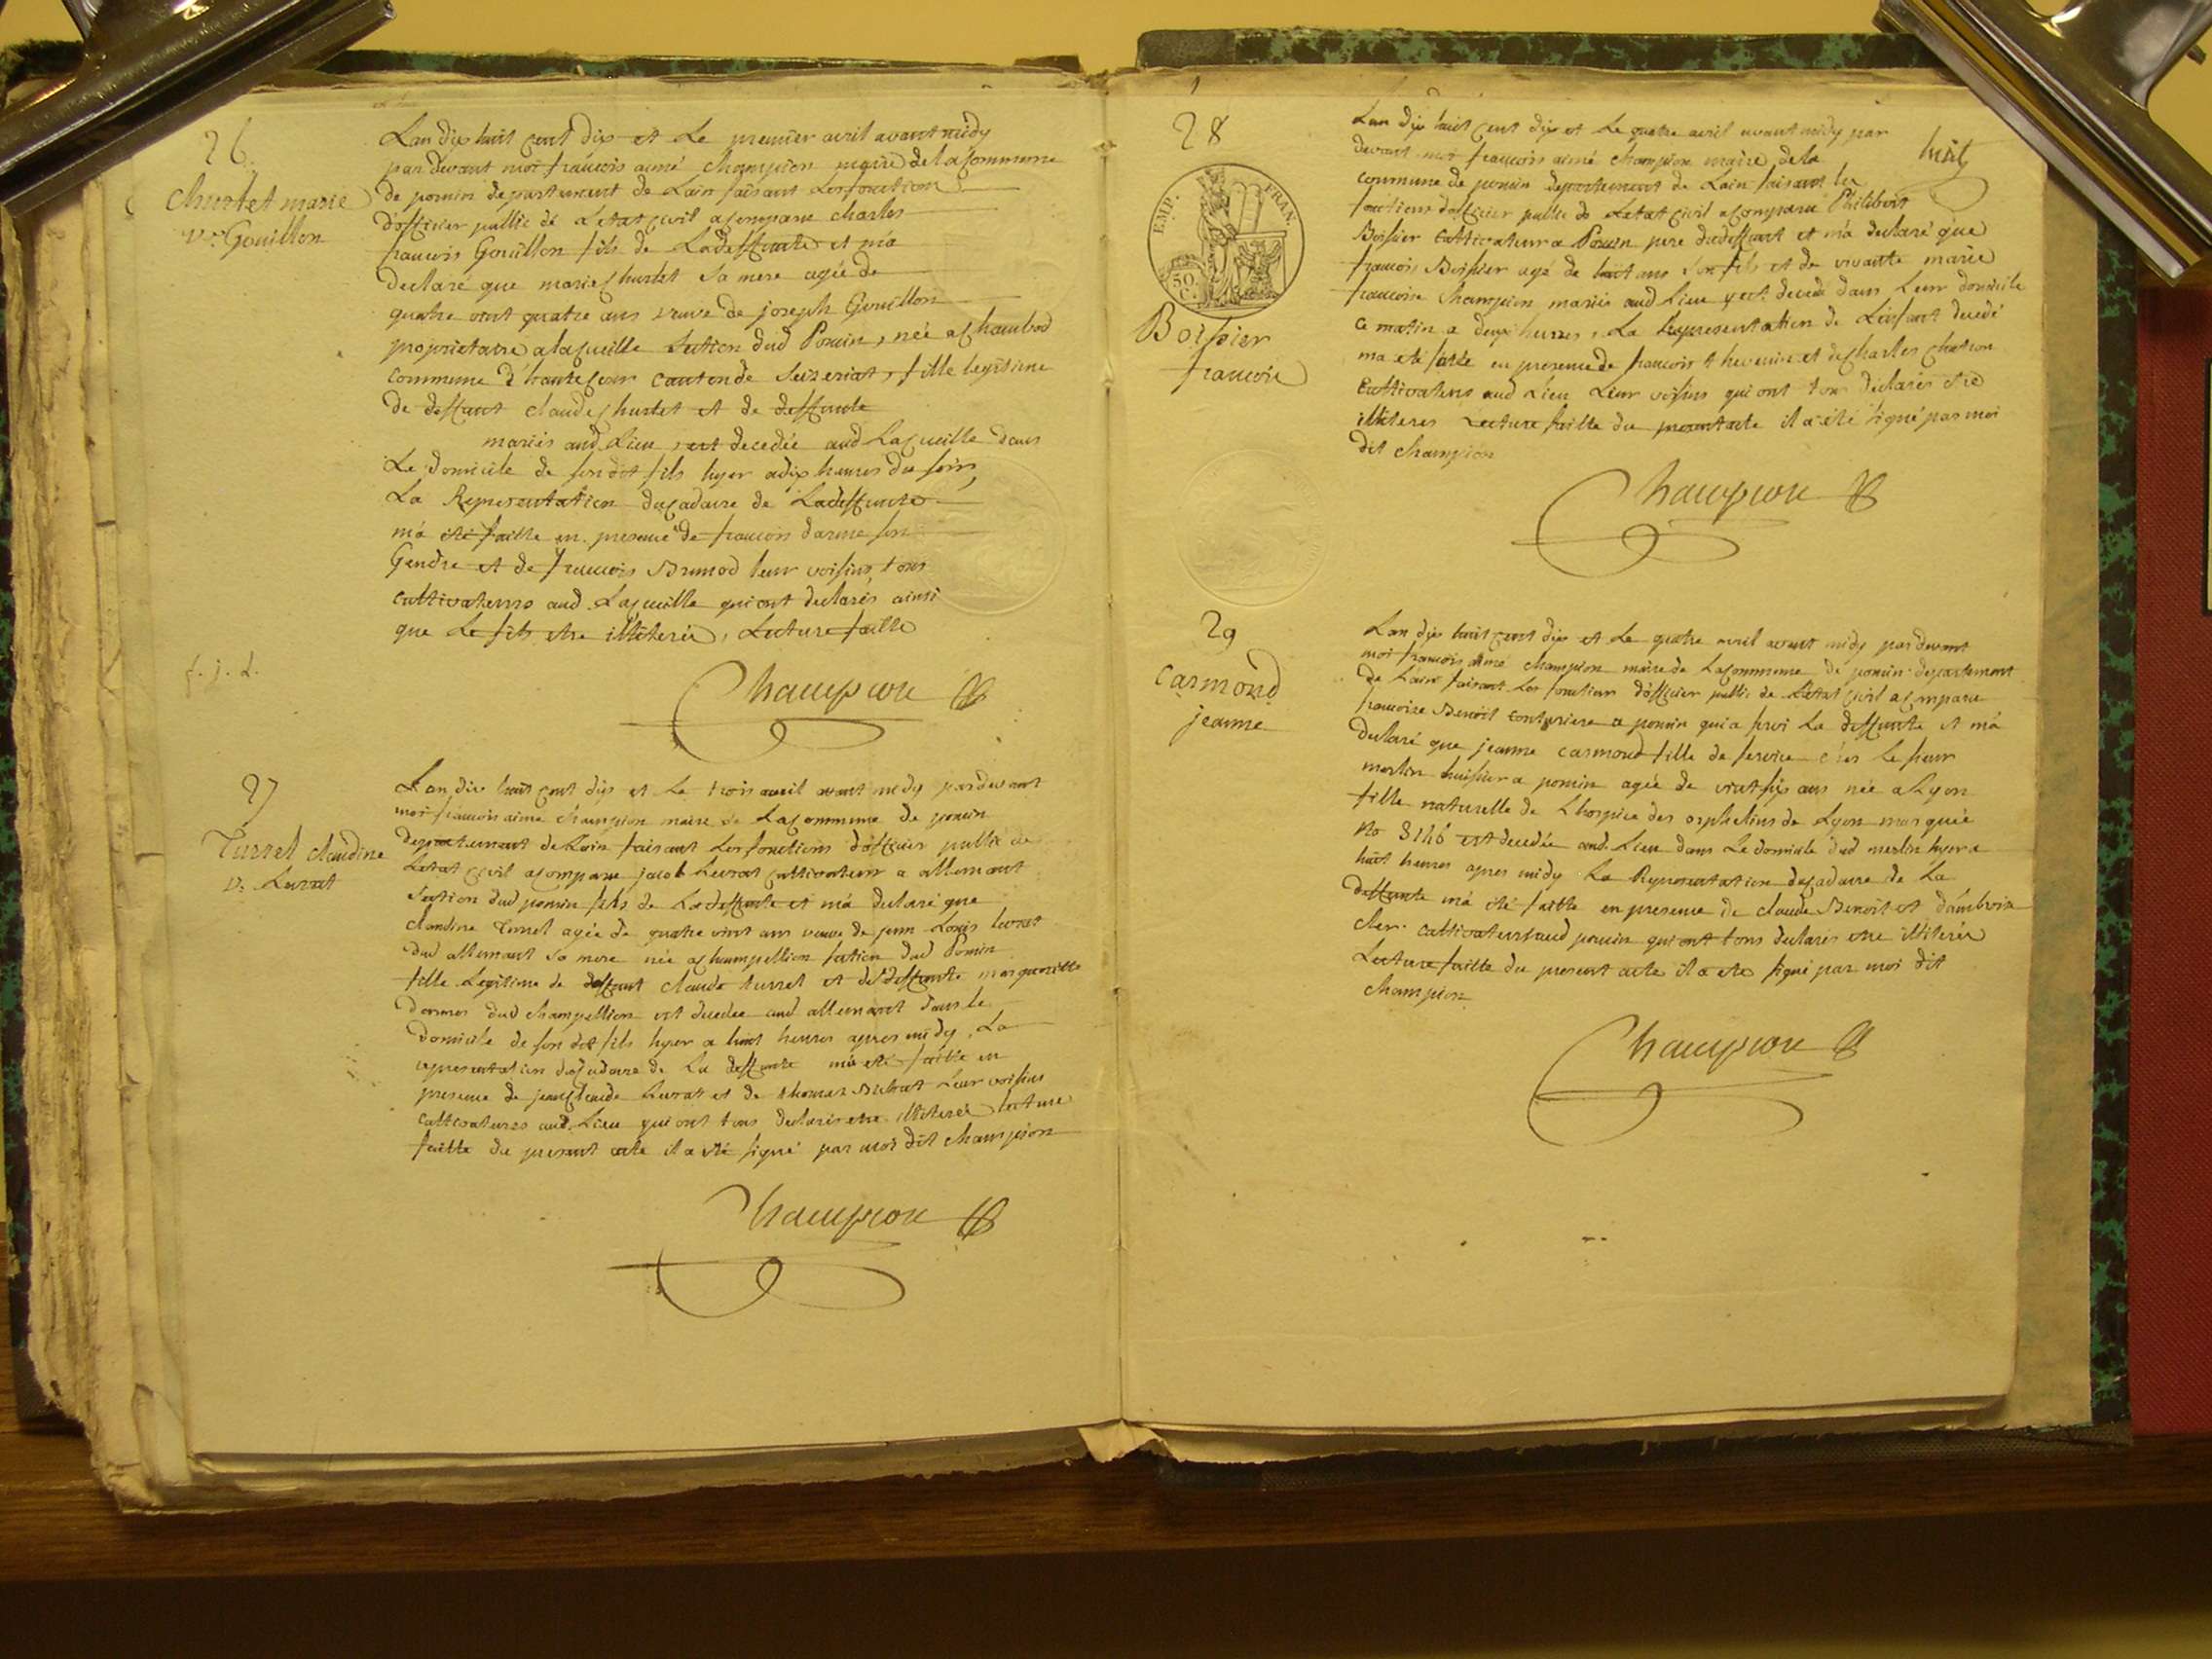 26
Churlet marie
Ve Gouillon
Lan dix huit cent dix et Le premier avril avant midy
par devant moi françois aimé Champion maire de la Commune
de poncin departement de Lain faisant Les fonctions
dofficier public de Letat civil a comparu charles
francois Gouillon fils de La deffunte et m'a
declaré que marie Churlet sa mere agée de
quatre vint quatre ans veuve de joseph Gouillon
proprietaire a la cueille section dud Poncin, née a Chambod
commune d'hautecour canton de Seizeriat, fille legitime
de deffunt claude Churlet et de deffunte
mariés aud Lieu, est decedée aud Lacueille dans
Le domicile de son dit fils hyer a dix heures du soir,
La Representation du cadavre de La deffunte
m'a été faitte en presence de francois darme son
Gendre et de francois Brunod leur voisins, tous
cultivateurs aud Lacueille qui ont declarés ainsi
que Le fils etre illiterés, Lecture faitte
f. j. d.
Champion
27
Turrel claudine
Ve Levrat
Lan dix huit cent dix et Le trois avril avant midy pardevant
moi francois aimé champion maire de La Commune de poncin
departement de Lain faisant Les fonctions d'officier public de
Letat civil a comparu jacob Levrat cultivateur a allemant
section dud poncin fils de La deffunte et m'a declaré que
claudine Turrel agée de quatre vint ans veuve de jean Louis Levrat
dud allemant sa mere née a champellion section dud Poncin
fille Legitime de deffunt claude turrel et de deffunte margueritte
dormes dud champellion est decedée aud allemant dans le
domicile de son dit fils hyer a huit heures apres midy, La
representation du cadavre de La deffunte m'a eté faitte en
presence de jean claude Levrat et de thomas Leur voisins
cultivateurs aud. Lieu qui ont tous declarés etre illiterés lecture
faitte du present acte il a eté signé par moi dit champion
Champion
28
EMP. FRAN.
50 C.
Boissier
francois
Lan dix huit cent dix et Le quatre avril avant midy par
devant moi francois aimé champion maire de la
commune de poncin departement de Lain faisant les
fonctions d'officier public de Letat civil a comparu Philibert
Boissier Cultivateur a Poncin pere du deffunt et m'a declaré que
francois Boissier agé de huit ans son fils et de vivante marie
francoise Champion mariés aud Lieu y est decedé dans Leur domicile
ce matin a deux heures, La Representation de Lenfant decedé
ma eté faitte en presence de francois thevenin et de Charles Chatron
Cultivateurs aud Lieu Leur voisins qui ont tous declarés etre
illiteres Lecture faitte du present acte il a été signé par moi
dit champion
Champion
29
Carmond
jeanne
Lan dix huit cent dix et Le quatre avril avant midy pardevant
moi francois aimé champion maire de La Commune de poncin departement
de Lain faisant Les fonctions d'officier public de Letat civil a comparu
francoise Benoit Couturiere a poncin qui a servi La deffunte et m'a
declaré que jeanne carmond fille de service chés Le sieur
merlin huissier a poncin agée de vint six ans née a Lyon
fille naturelle de Lhospice des orphelins de Lyon marquée
No 3146 est decedée aud. Lieu dans Le domicile dud merlin hyer a
huit heures apres midy La Representation du cadavre de La
deffunte m'a été faitte en presence de claude Benoit et d'ambroix
cler. Cultivateurs aud poncin qui ont tous declarés etre illiterés
Lecture faitte du present acte il a ete signé par moi dit
champion
Champion